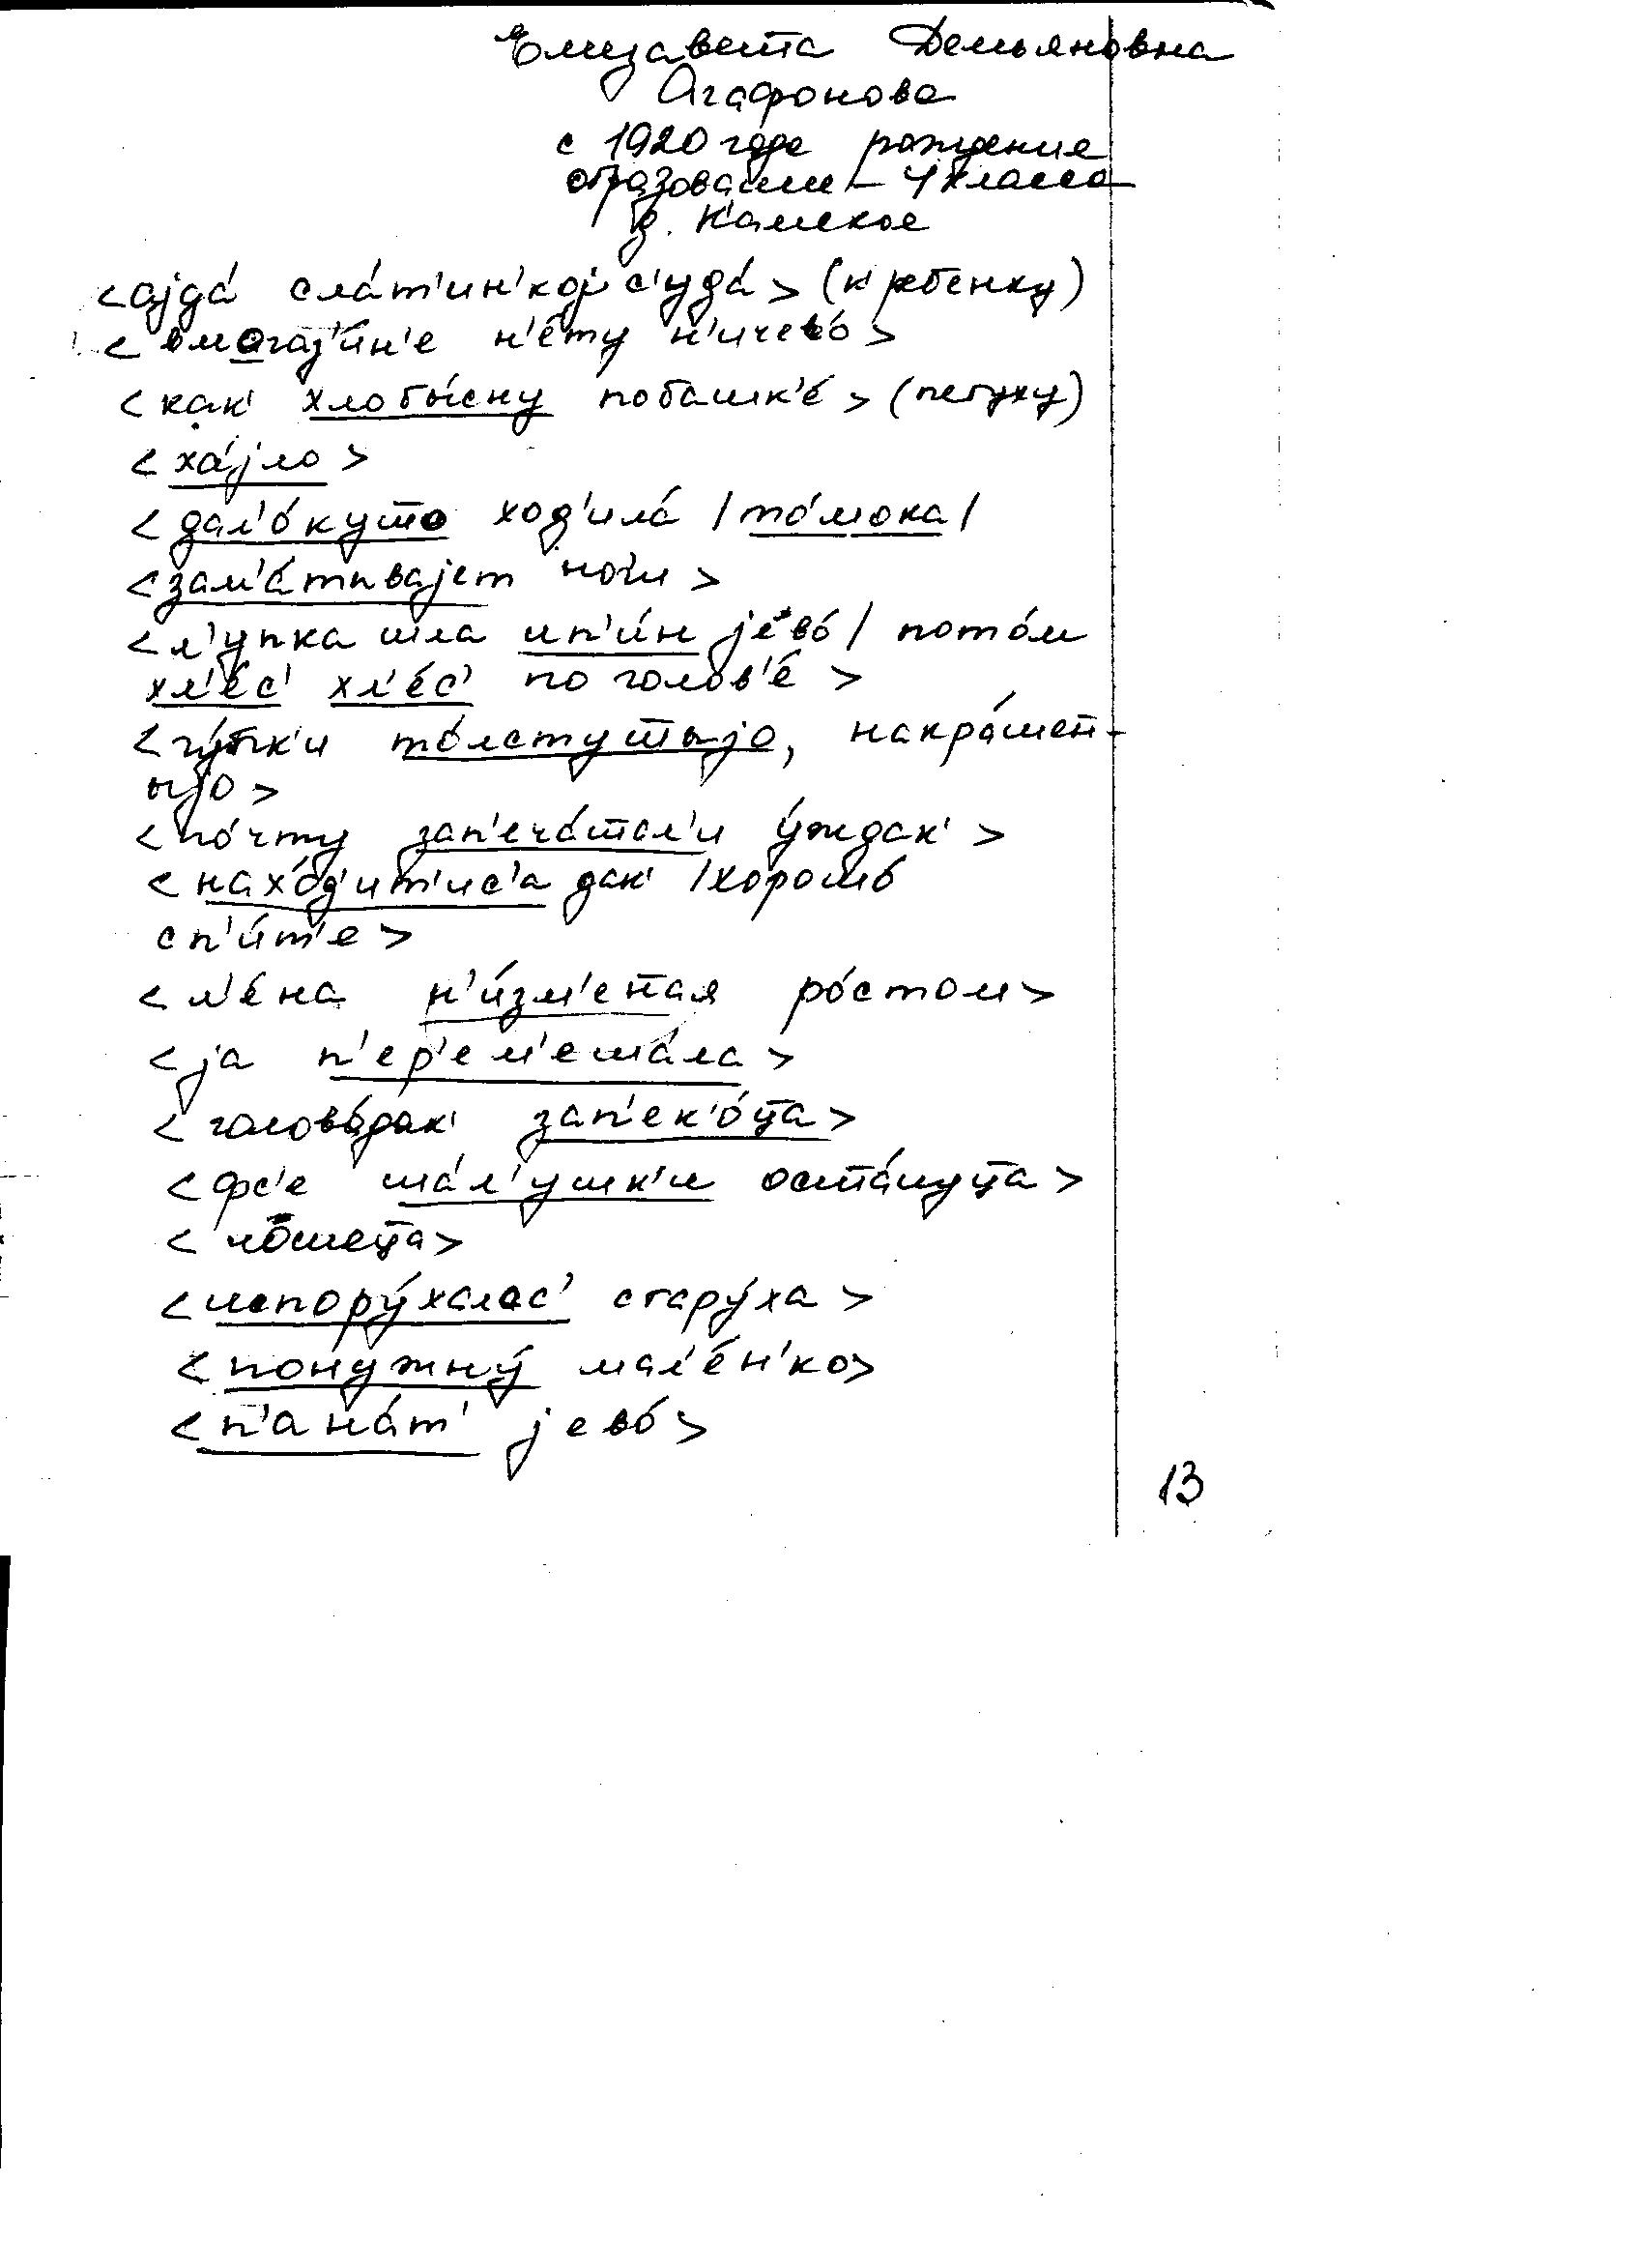 Елизавета Демьяновна
Агафонова
с 1920 года рождения
образование – 4 класса
д. Камское
<ајда́ сла́т'ин'кој с'уда́> (к ребенку)
<вмагаз'и́н'е н'е́ту н'ичево́>
<как хлобы́сну побашк'е́> (петуху)
<ха́јло>
<дал'о́куто ход'ила́ /то́мока/
<зам'а́тывајет ноги>
<л'у́пка шла ип'и́н јево́/ пото́м
хл'е́с' хл'е́с' по голов'е́>
<гу́пк'и то́лстуш̅ыјо, накра́шен̅-
ыјо>
<по́чту зап'еча́тал'и у́ждак>
<нахо́д'ит'ис'а дак /хорошо́
сп'и́т'е>
<л'е́на н'и́зм'ен̅ая ро́стом>
<ја п'ер'ем'ешáла>
<голова́дак зап'ек'о́ц̅а>
<фс'е ша́л'ушк'и оста́нуц̅а>
<мо́шец̅а>
<испору́халас' стару́ха>
<понужну́ мал'е́н'ко>
<п'ана́т' јево́>
13